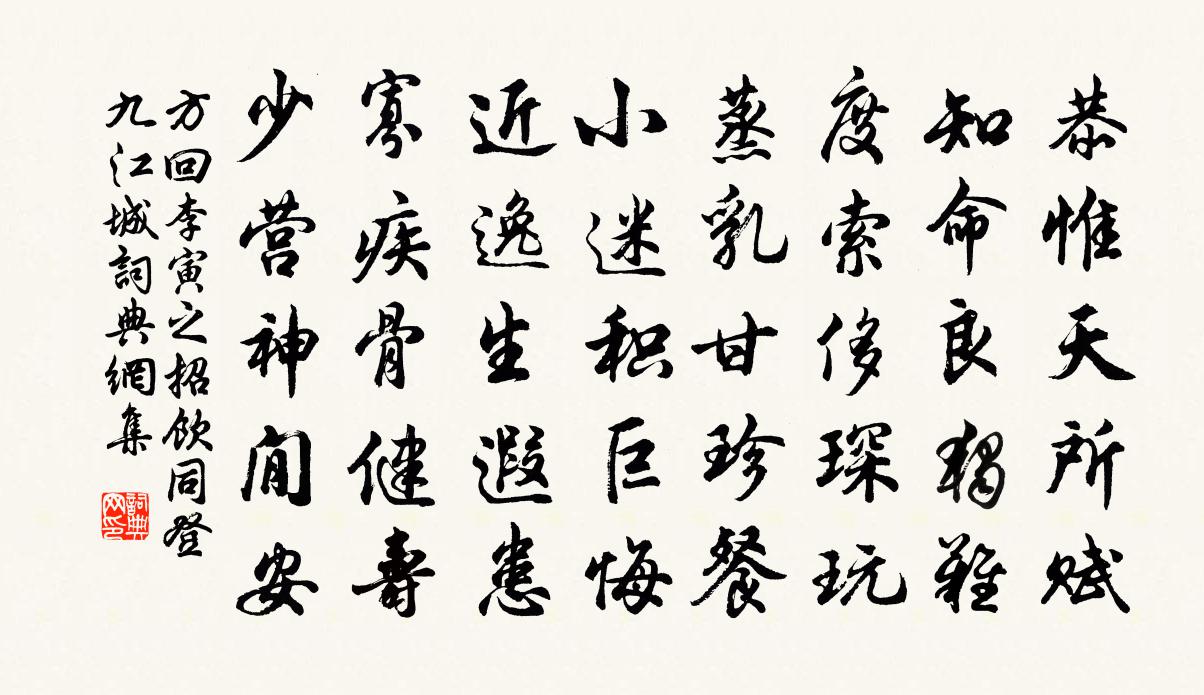 恭惟天所赋
知命良独难
度索侈琛玩
蒸乳甘珍餐
小迷积巨悔
近逸生遐患
寡疾骨健壽
少营神闲安
方回李寅之招飲同登
九江城詞典網集
詞典网印